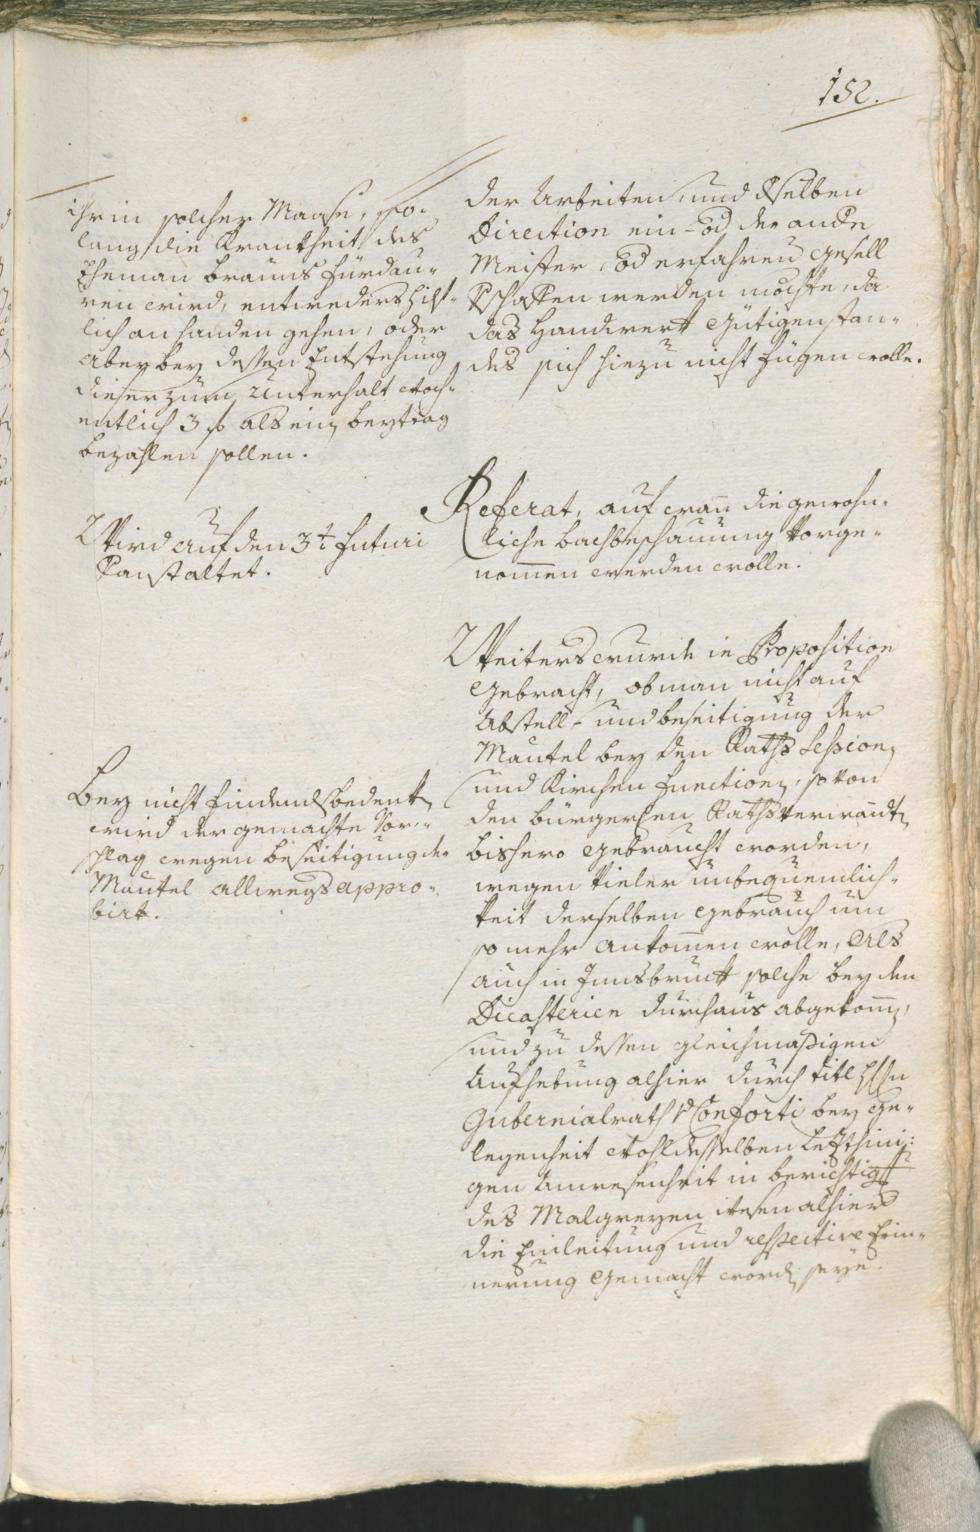 152.
ihr in solcher Maase, so-
lang die Krankheit des
Eheman Brauns fürdau-
ren wird, entweders hilf-
lich an handen gehen, oder
aber bey dessen Entstehung
dieser zum Unterhalt woch-
entlich 3 f als ein beytrag
bezahlen sollen.
Wird auf den 3t futuri
Vanstaltet.
Bey nicht findends bedenken
wird der gemachte Vor-
schlag wegen beseitigung der
Mäntel allwegs appro-
birt.
der Arbeiten, und dselben
Direction ein- od der ande
Meister, od erfahrend gesell
Vschaffen werden möchte, da
das Handwerk gütigenstan-
des sich hiezu nicht fügen wolle.
Referat, auf wann die gewohn-
liche bachbeschauung Vorge-
nommen werden wolle.
Weiters wurde in Proposition
gebracht, ob man nicht auf
Abstell- und beseitigung der
Mäntel bey den Raths Session
und Kirchen Function, so von
den bürgerlen Rathsverwandten
bishero gebraucht worden,
wegen vieler unbequemlich-
keit derselben gebrauch um
so mehr ankommen wolle, als
auch in Innsbruck solche bey den
Dicasterien durchaus abgekommen,
und zu dessen gleichmäßigen
Aufhebung alhier durch titl Hn
Gubernialrath v Conforti bey ge-
legenheit wohldesselben letzthini-
gen Anwesenheit in berichtig
des Malgreyen wesen alhier
die Einleitung und respective Erin-
nerung gemacht word seye.